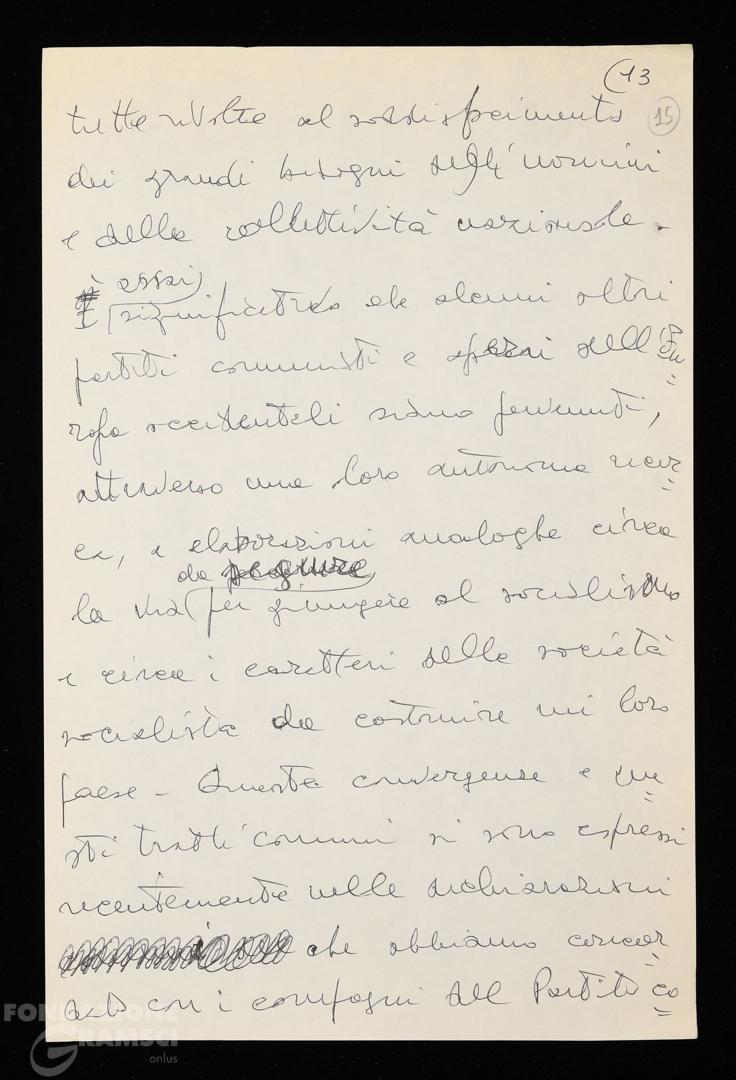 (13
15
tutte rivolte al soddisfacimento
dei grandi bisogni degli uomini
e della collettività nazionale.
È assai
significativo che alcuni altri
partiti comunisti e operai dell'Eu=
ropa occidentale siano pervenuti,
attraverso una loro autonoma ricer=
ca, a elaborazioni analoghe circa
da seguire
la via per giungere al socialismo
e circa i caratteri della società
socialista da costruire nei loro
paese – Queste convergenze e que=
sti tratti comuni si sono espressi
recentemente nelle dichiarazioni
che abbiamo concor=
dato con i compagni del Partito co=
FONDAZIONE
GRAMSCI
onlus